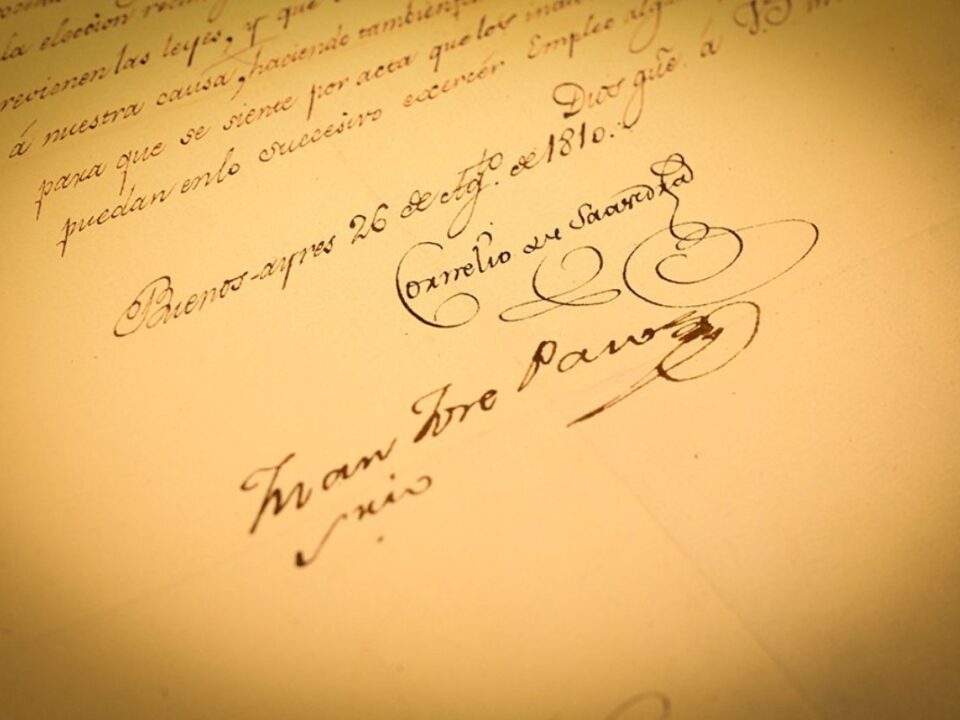 la eleccion
revienen las leyes, y que
á nuestra causa, haciendo tambien
para que se siente por acta que los
puedan enlo succesivo exercer Empleo
Dios gũe. á
Buenos-ayres 26 de Ag.to de 1810.
Cornelio de Saavedra
Juan Jose Passo
Srio.